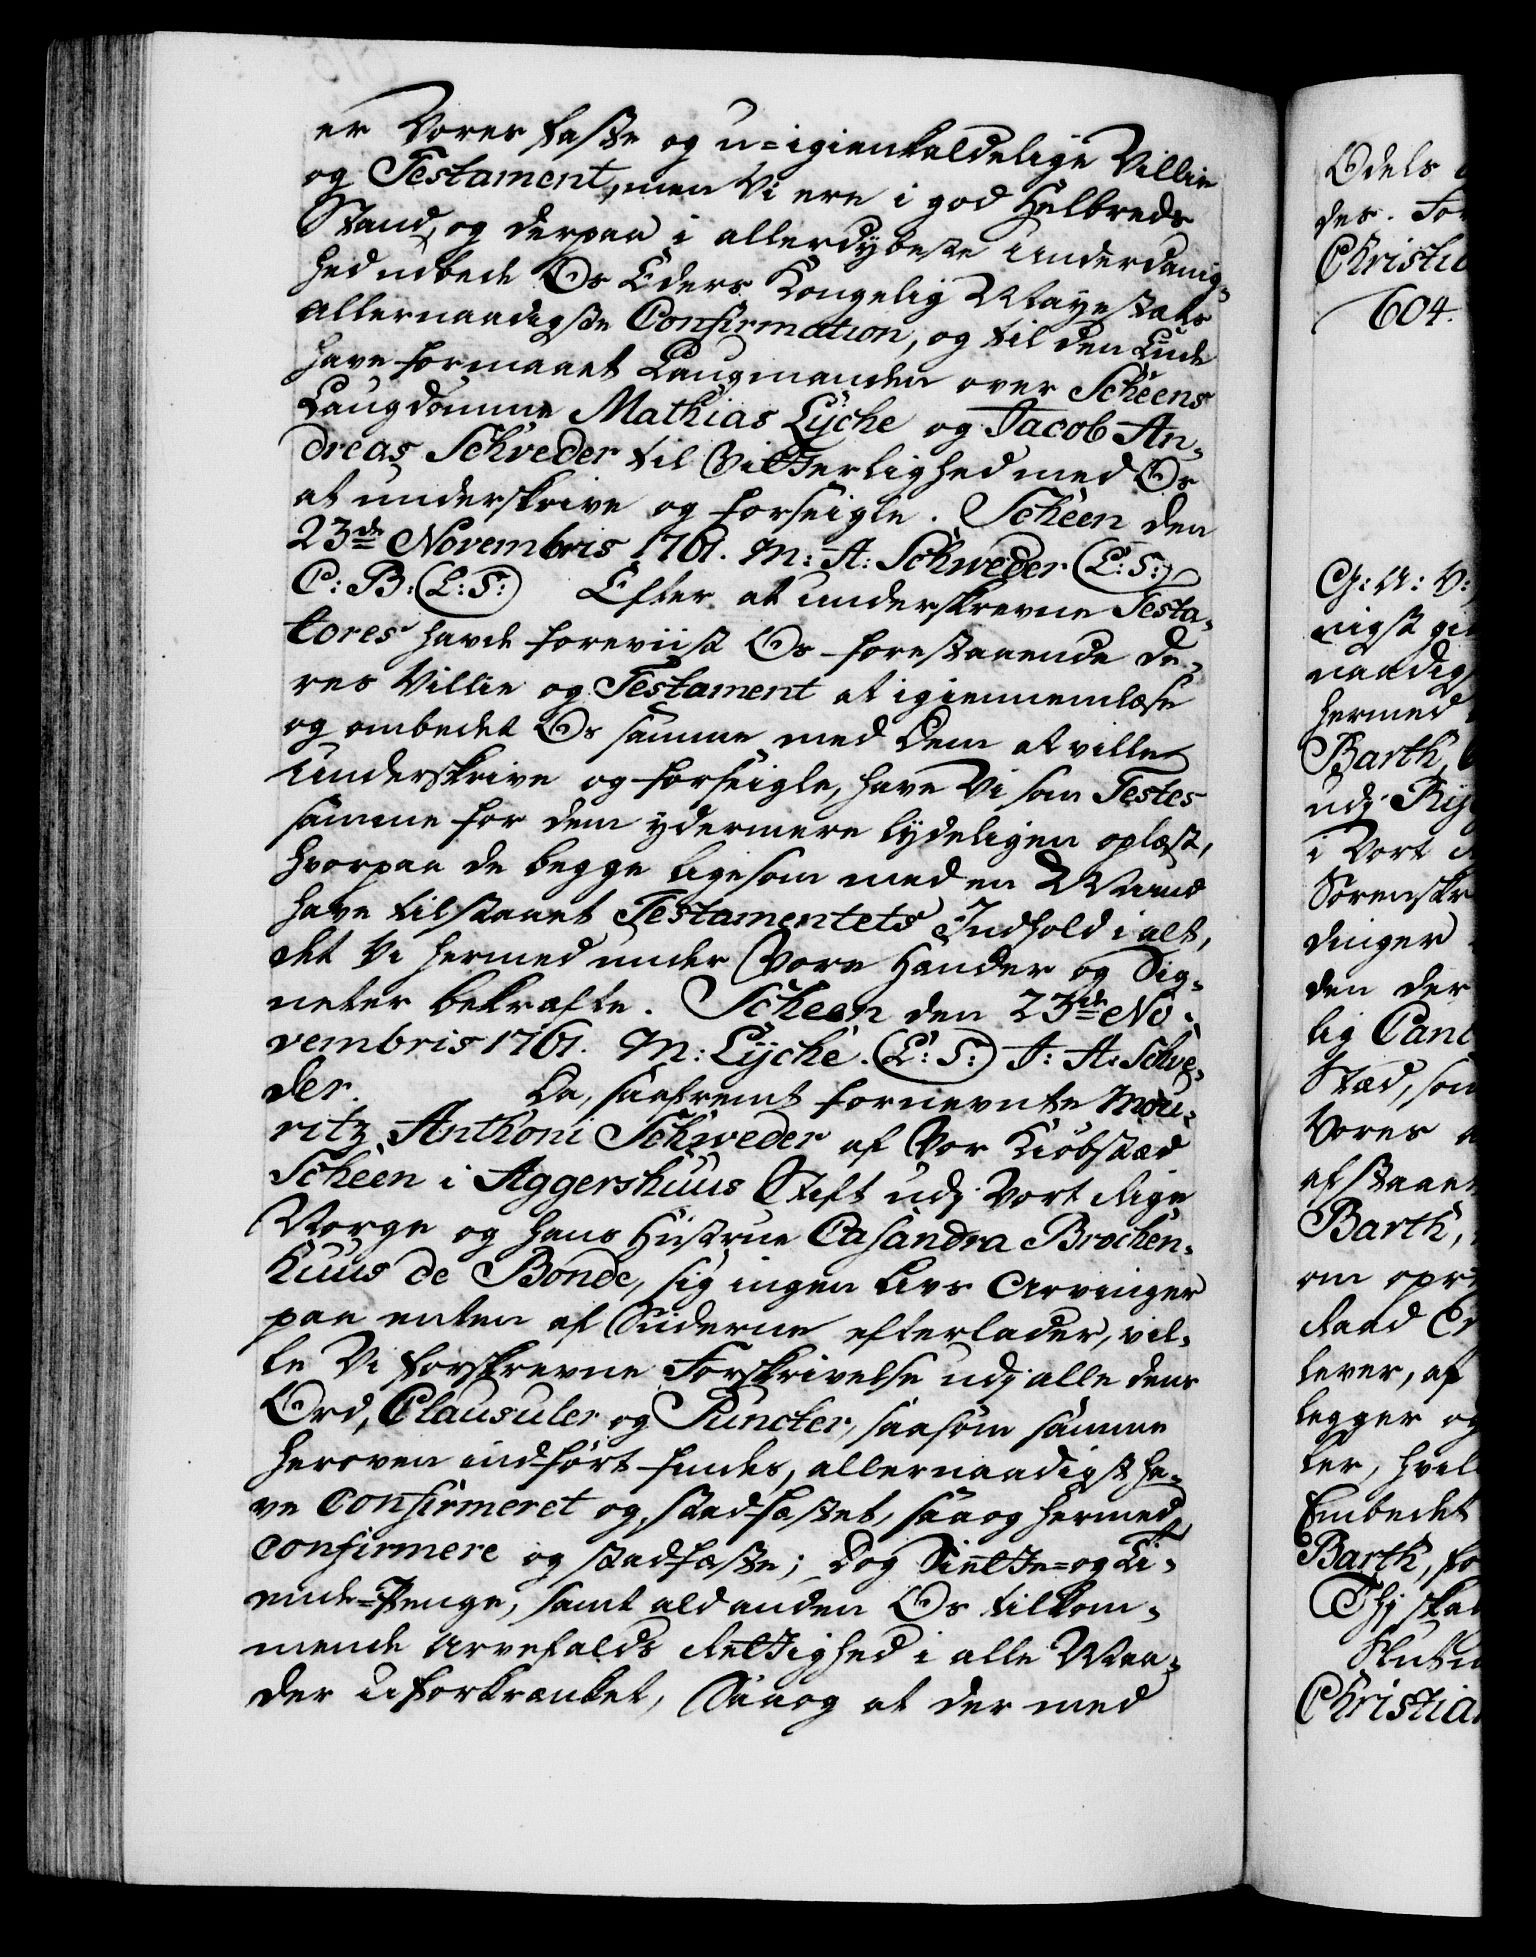 er Vores faste og u-igienkaldelige Villie
og Testament, men Vi ere i god Helbreds
Stand, og derpaa i allerdybeste Underdanig-
hed udbede Os Eders Kongelig Mayestæts
allernaadigste Confirmation, og til den Ende
have formaaet Laugmanden over Scheens
Laugdømme Mathias Lyche og Jacob An-
dreas Schveder til Vitterlighed med Os
at underskrive og forseigle. Scheen den
23de Novembris 1761. M: A: Schweder (L:S:)
C: B: (L:S:) Efter at underskrevne Testa-
tores havde foreviist Os forestaaende de-
res Villie og Testament at igiennemlæse
og ombedet Os samme med dem at ville
underskrive og forseigle, have Vi som Testes
samme for dem ydermere lydeligen oplæst,
hvorpaa de begge ligesom med en Mund
have tilstaaet Testamentets Indhold i alt,
det Vi hermed under Vore Hænder og Sig-
neter bekræfte. Scheen den 23de No-
vembris 1761. M: Lyche. (L:S:) J: A: Schve-
der. Da, saafremt fornevnte Mou-
ritz Anthoni Schweder af Vor Kiøbstæd
Scheen i Aggershuus Stift udj Vort Rige
Norge og hans Hustrue Casandra Brochen-
huus de Bonde, sig ingen Livs Arvinger
paa enten af Siderne efterlader, vil-
le Vi forskrevne Forskrivelse udj alle dens
Ord, Clausuler og Puncter, saasom samme
heroven indført findes, allernaadigst ha-
ve confirmeret og stadfæstet, saa og hermed
confirmere og stadfæste; Dog Siette- og Ti-
ende-Penge, samt ald anden Os tilkom-
mende Arvefalds Rettighed i alle Maa-
der uforkrænket, Saa og at der med
Odels
der. For
Christi
604.
C: A: V:
nigst gi
naadig
hermed
Barth,
udj
i Vort
Sorenskr
dinger
den der
lig Canc
Stæd, som
Vores
afstaaet
Barth,
om opr
Raad
lever, af
legger og
ler, hvil
Embedet
Barth, fo
Thj skal
Christia